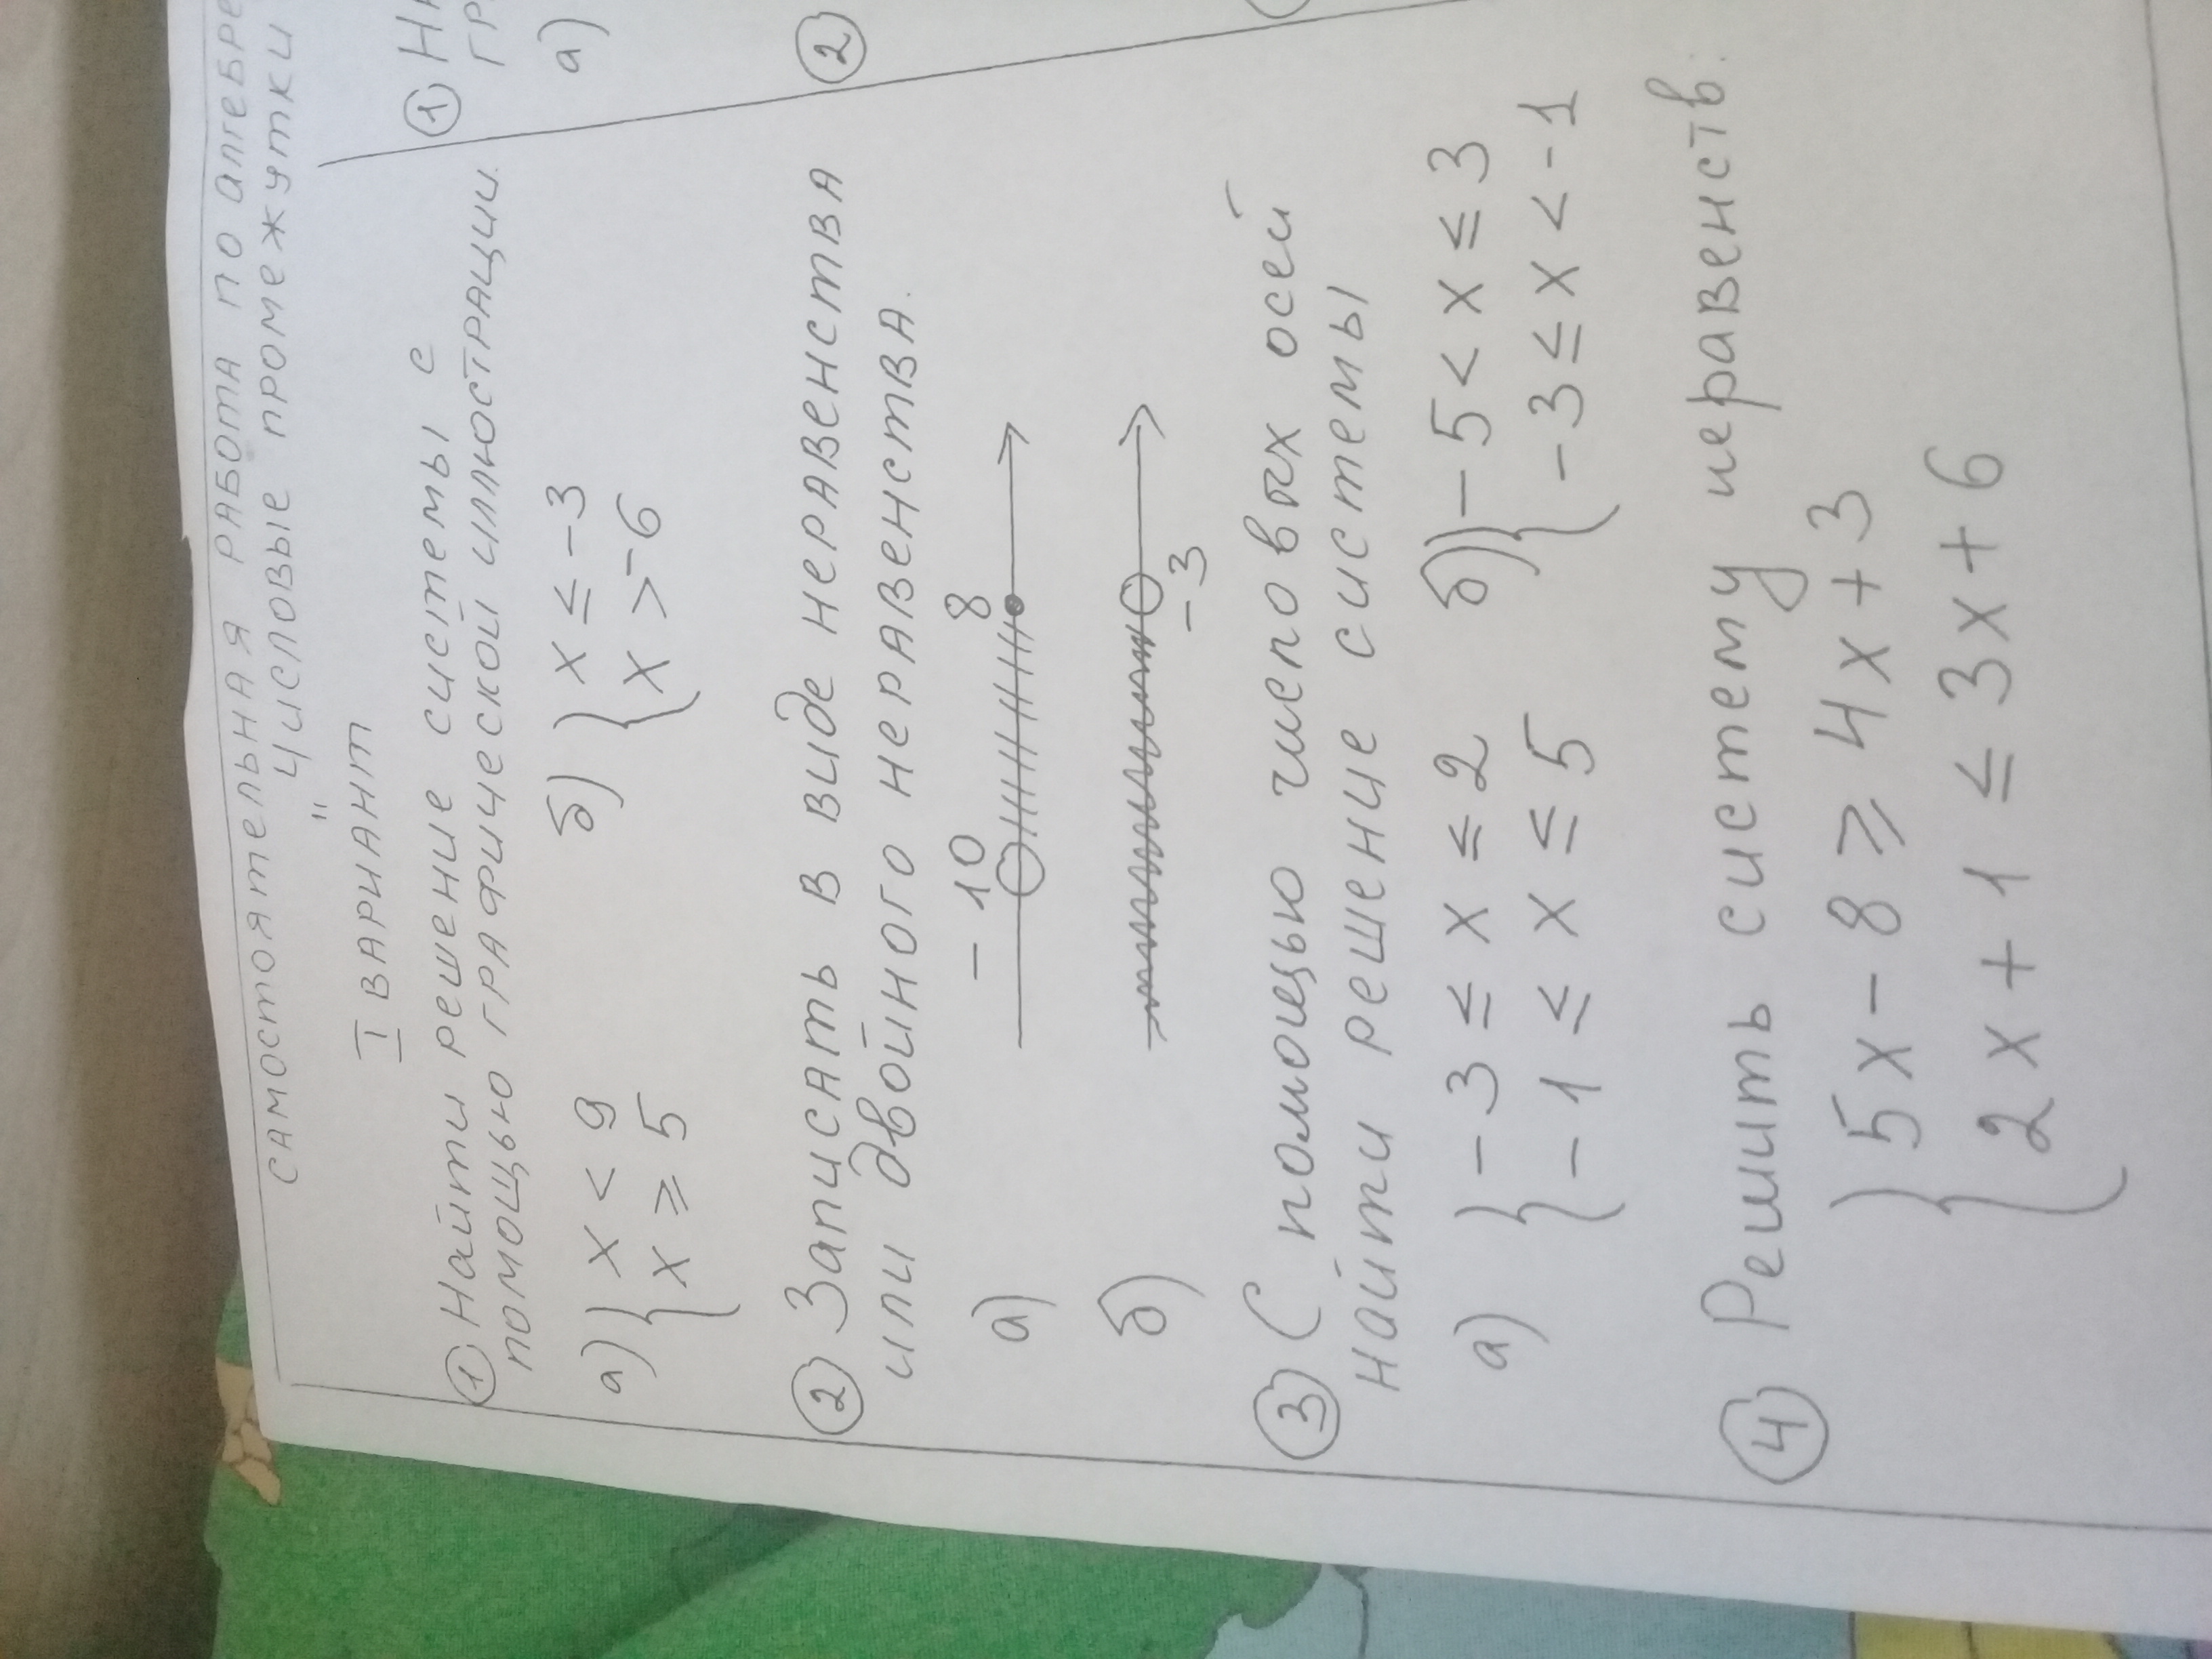 САМОСТОЯТЕЛЬНАЯ РАБОТА ПО АЛГЕБРЕ
"Числовые промежутки
I ВАРИАНТ
① Найти решение системы с
помощью графической иллюстрации.
а) { x < 9
x ≥ 5
б) { x ≤ -3
x > -6
② Записать в виде неравенства
или двойного неравенства.
а) -10 8
б) -3
③ С помощью числовых осей
найти решение системы
а) { -3 ≤ x ≤ 2
-1 ≤ x ≤ 5
б) { -5 < x ≤ 3
-3 ≤ x < -1
④ Решить систему неравенств:
{ 5x - 8 ≥ 4x + 3
2x + 1 ≤ 3x + 6
①
а)
②